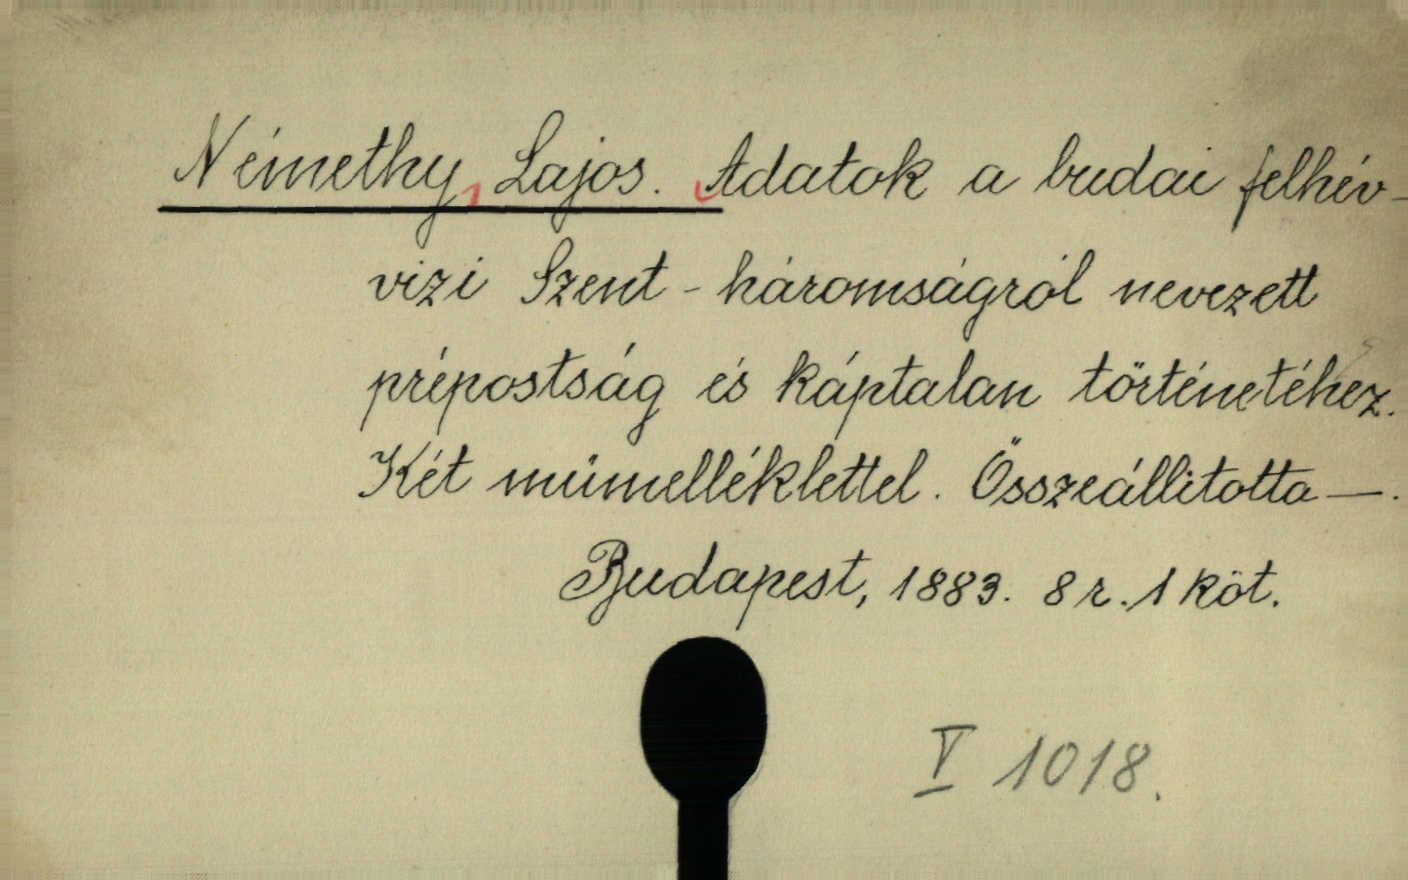 Némethy, Lajos. Adatok a budai felhév-
vizi Szent-háromságról nevezett
prépostság és káptalan történetéhez.
Két műmelléklettel. Összeállitotta —.
Budapest, 1883. 8 r. 1 köt.
V 1018.